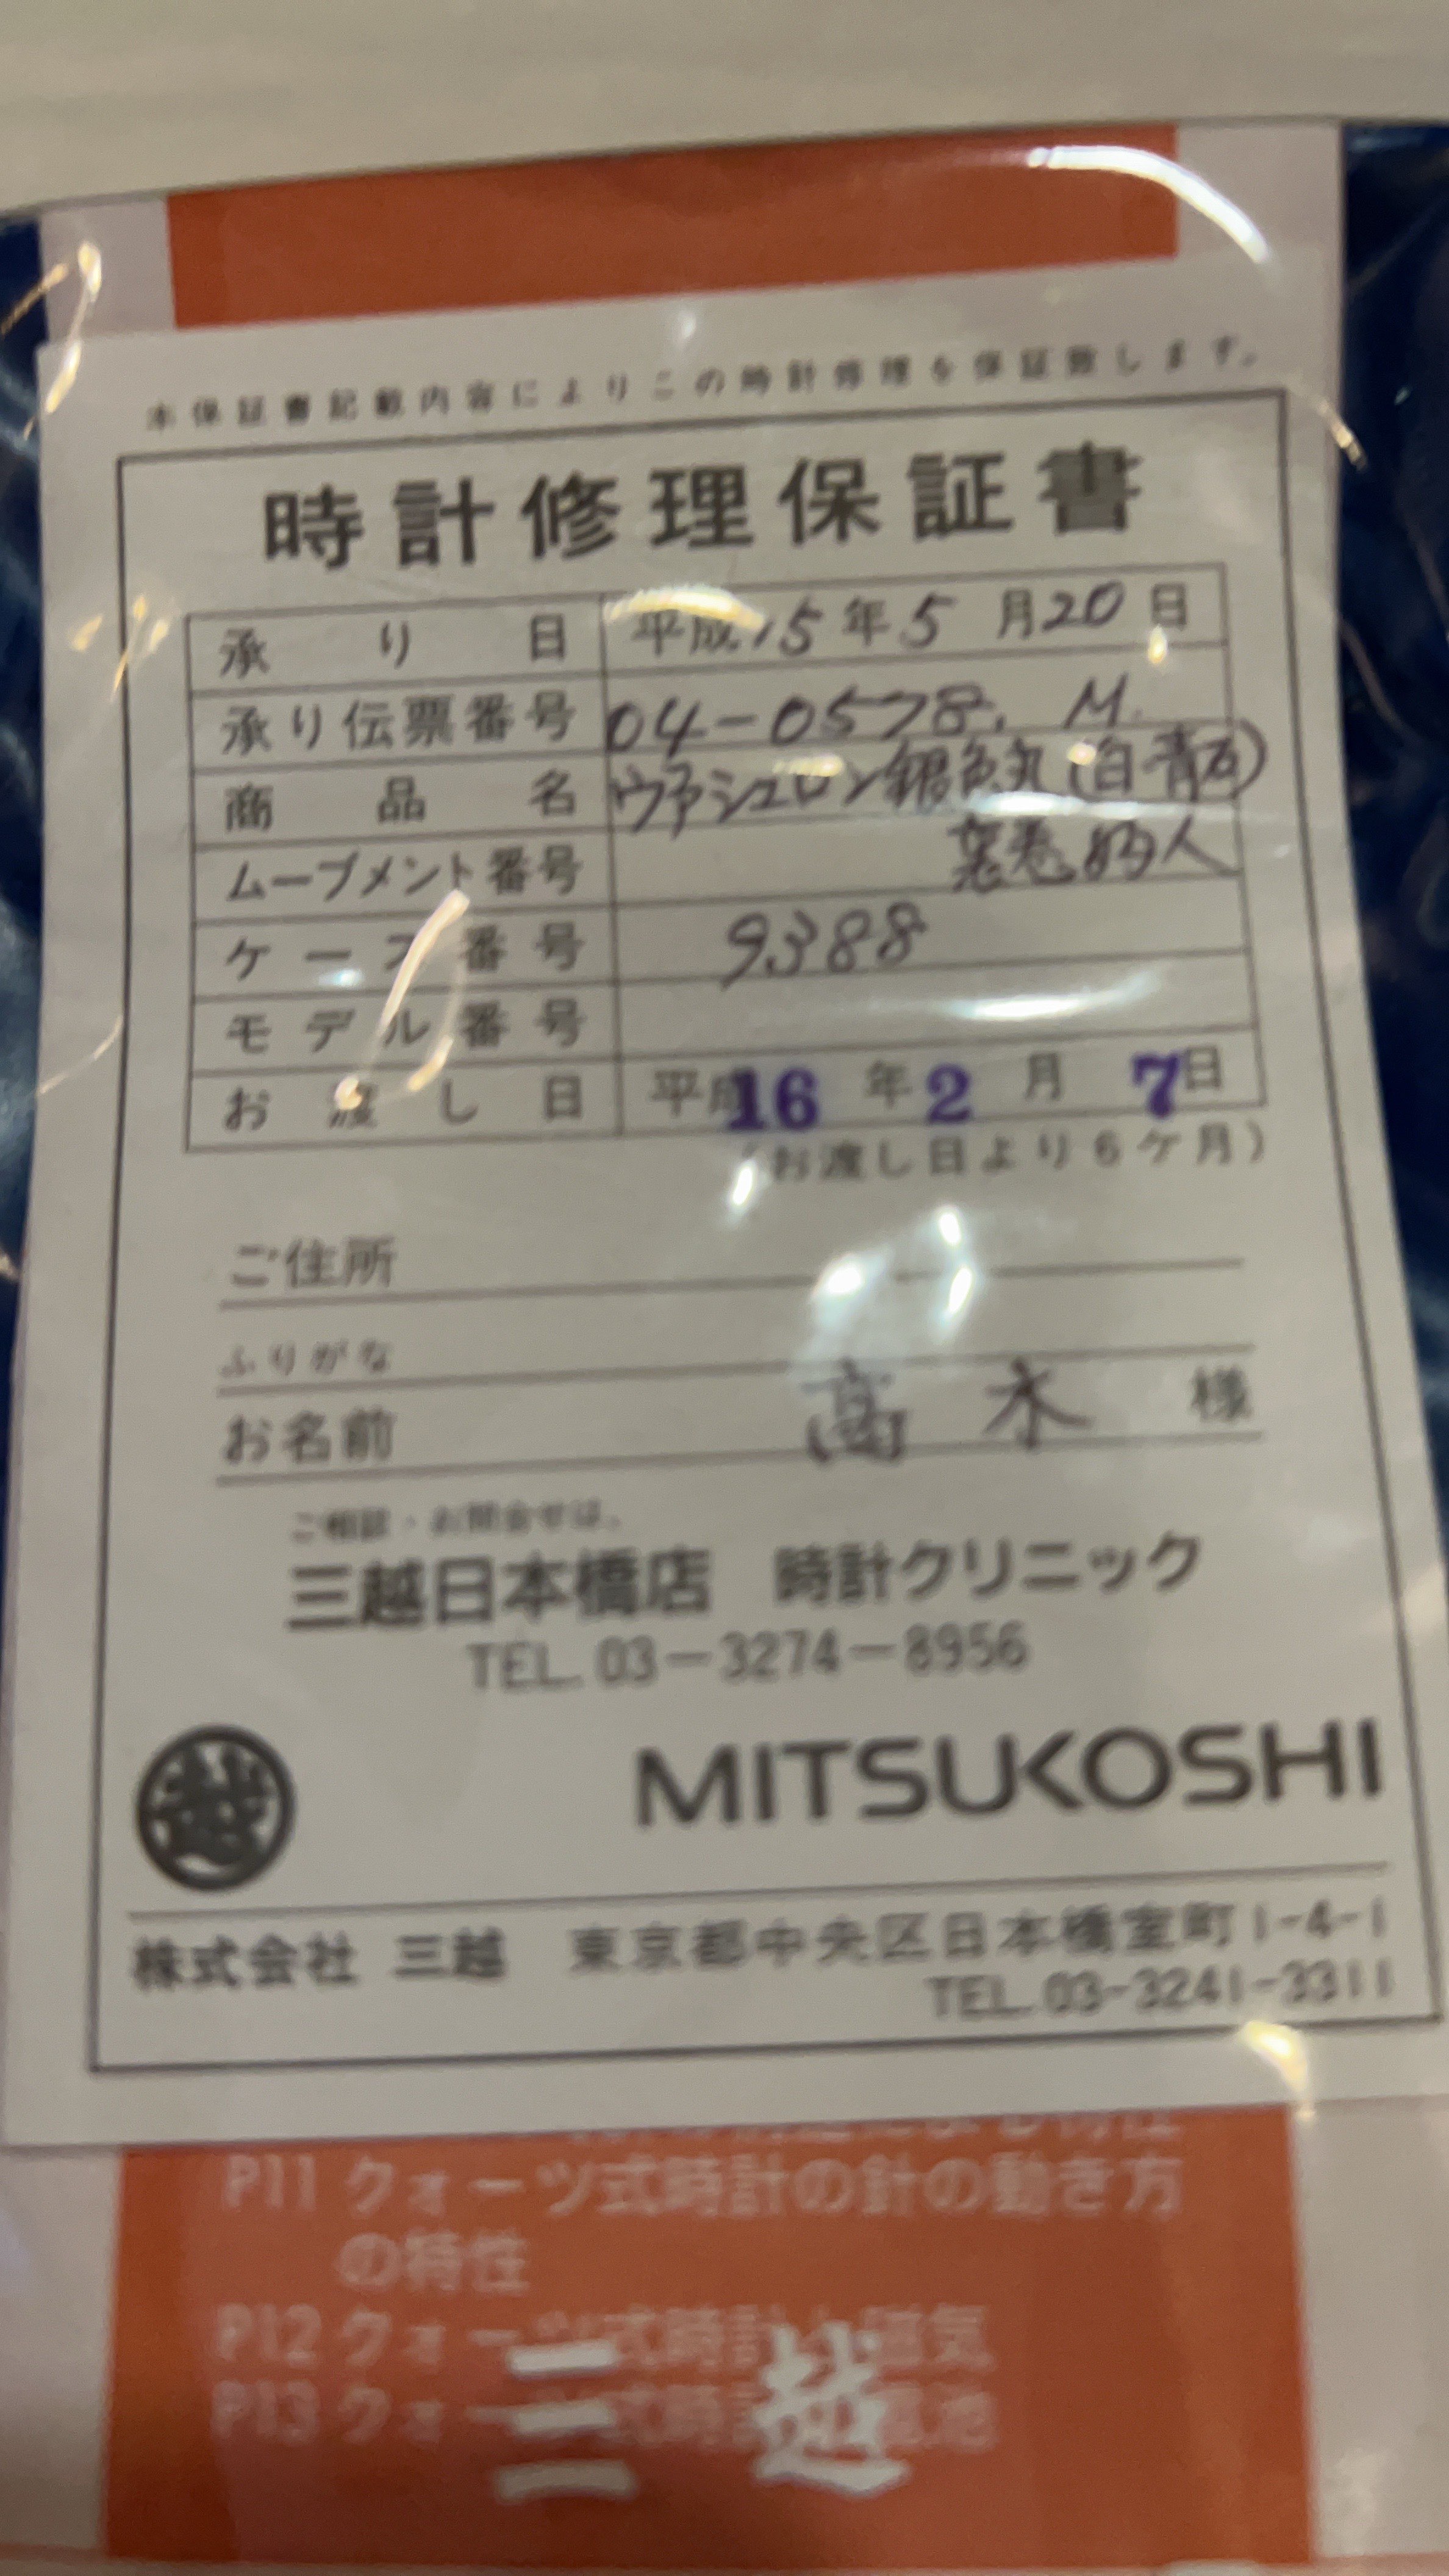 本保証書記載内容によりこの時計修理を保証致します。
時計修理保証書
承り日 平成15年5月20日
承り伝票番号 04-0578. M.
商品名 ヴァシュロン銀色丸(白青石)
ムーブメント番号
ケース番号 9388
モデル番号
お渡し日 平成16年2月7日
(お渡し日より6ケ月)
ご住所
ふりがな
お名前 高木 様
ご相談・お問合せは、
三越日本橋店 時計クリニック
TEL.03-3274-8956
MITSUKOSHI
株式会社 三越 東京都中央区日本橋室町1-4-1
TEL.03-3241-3311
P11 クォーツ式時計の針の動き方
の特性
P12 クォーツ式時計と磁気
P13 クォーツ式時計の電池
三越